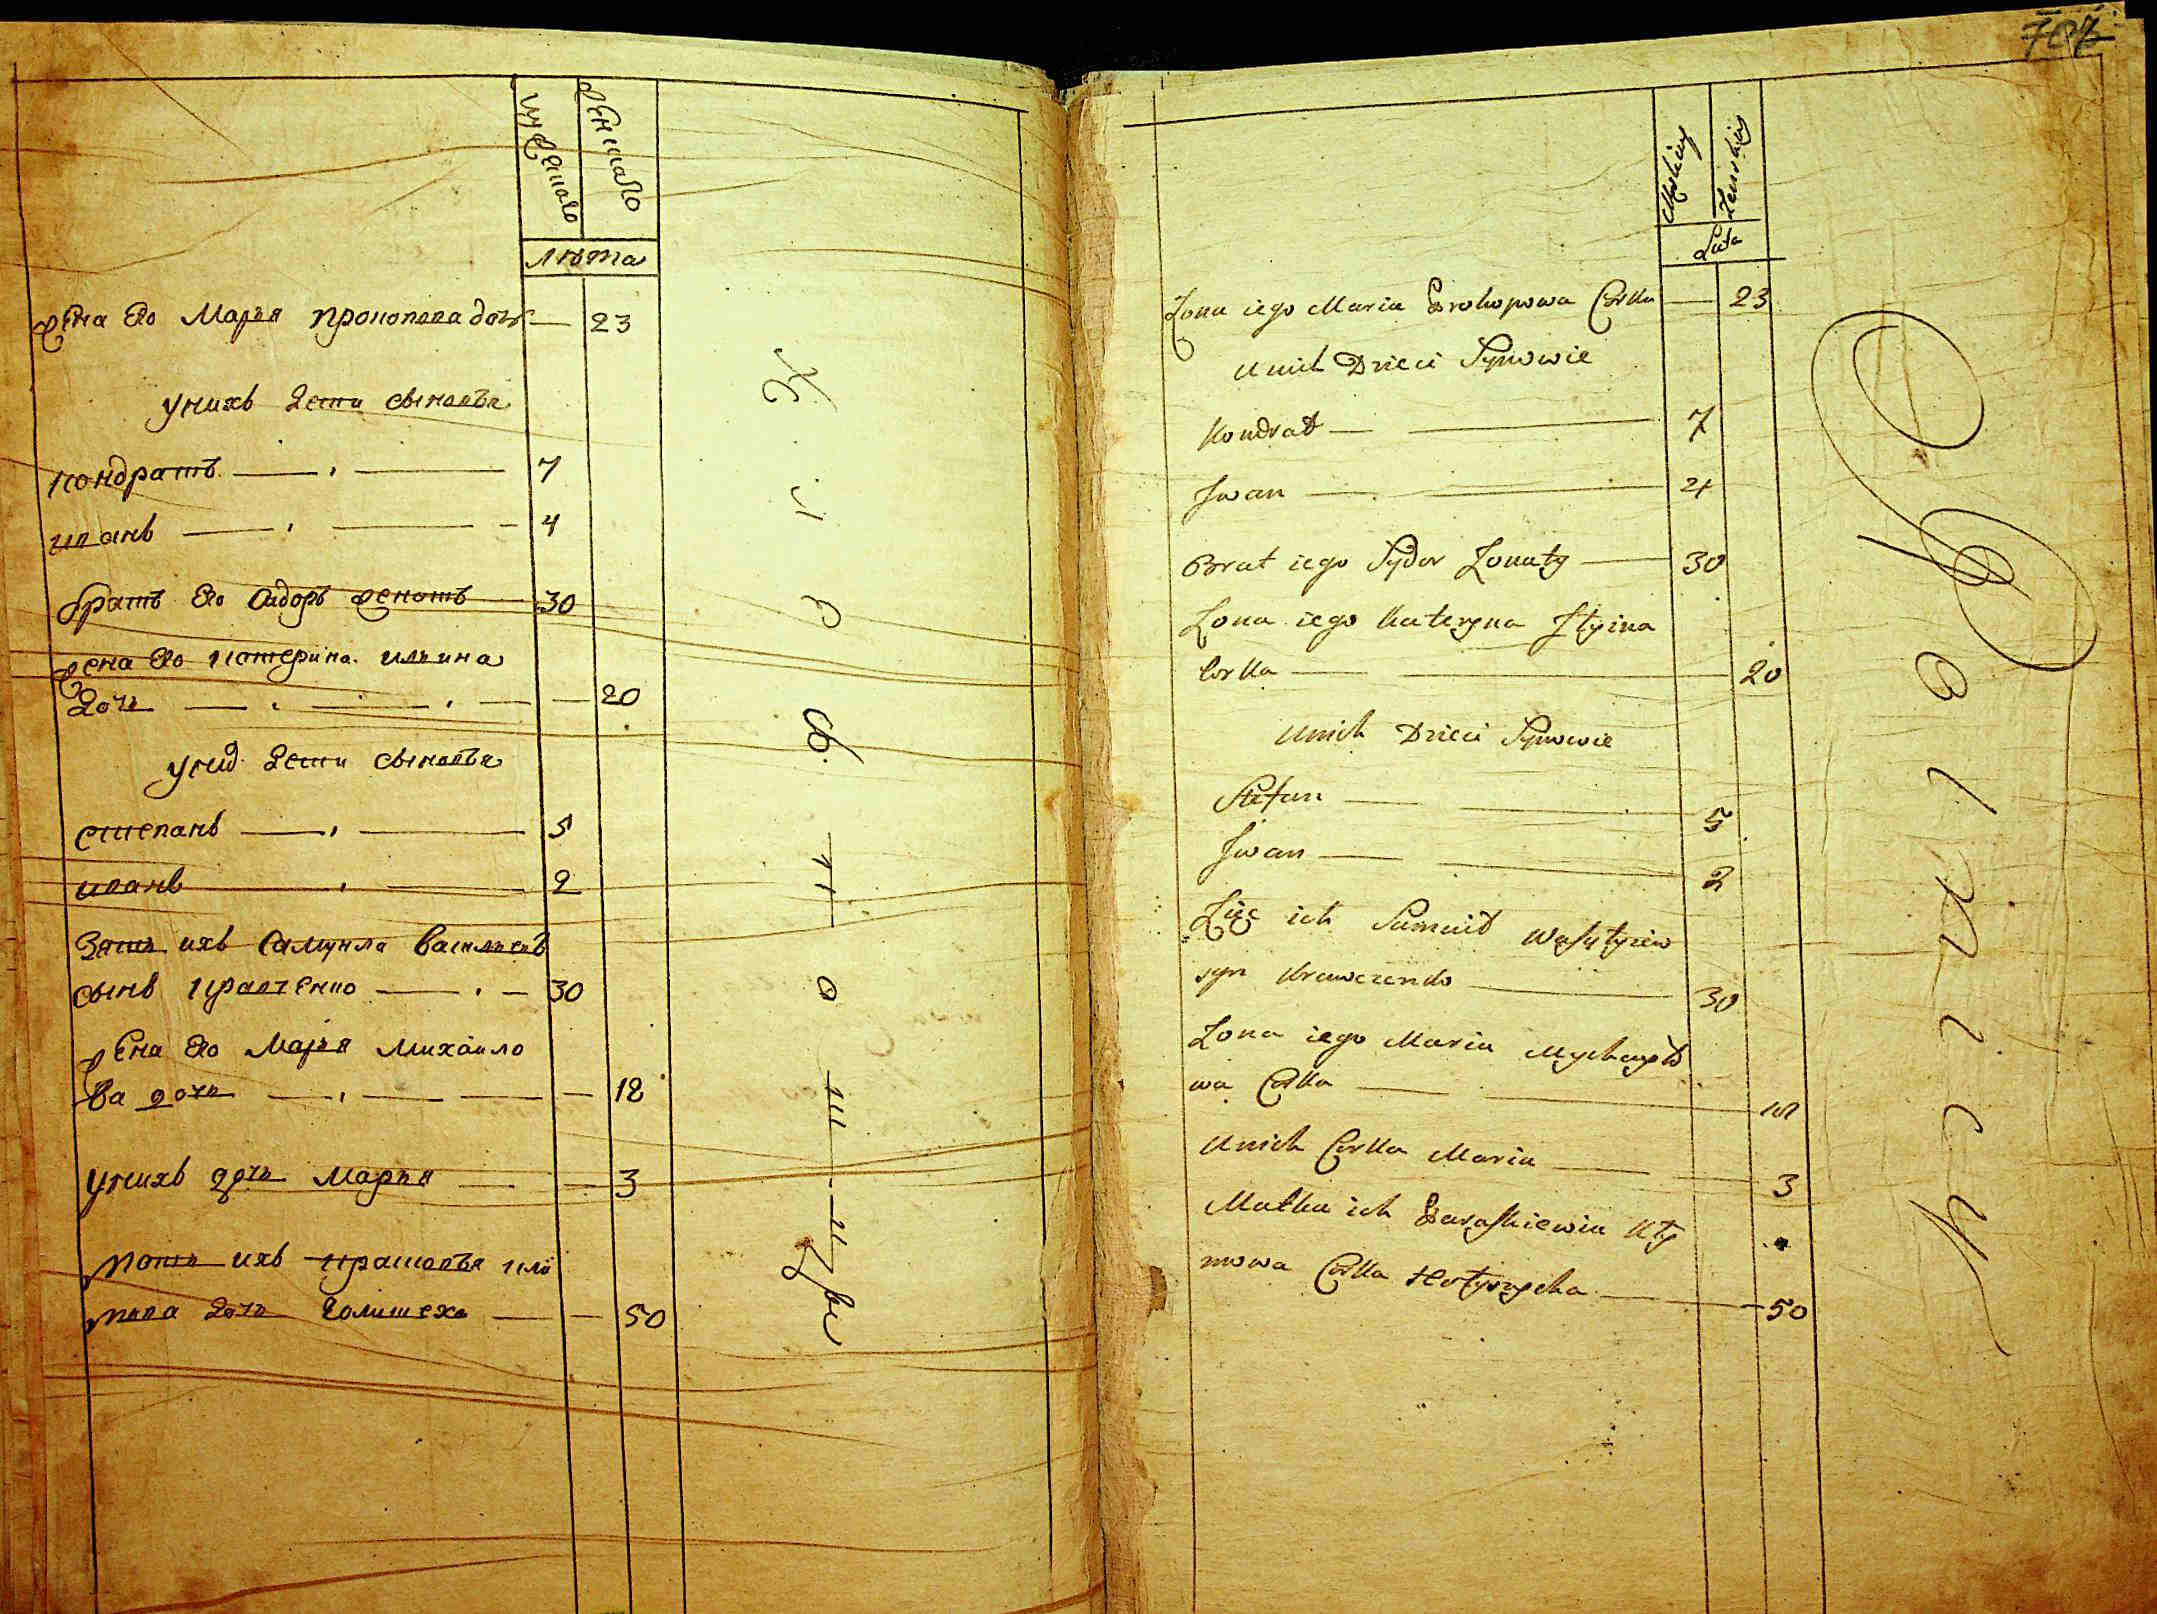 мужеска
женска
лѣта
жена его Марья прокопова дочь — 23
у нихъ дети сыновья
кондратъ — 7
иванъ — 4
братъ его сидоръ женатъ 30
жена его катерина ильина
дочь — 20
у них дети сыновья
степанъ — 5
иванъ — 2
зять ихъ самуила васильевъ
сынъ кравченко — 30
жена его Марья михаило
ва дочь — 18
у нихъ дочь марья — 3
мать ихъ прасковья кли
мова дочь — 50
707
Męskiey
Żenskiey
Lata
Żona iego Maria Prokopowa Corka — 23
u nich Dzieci Synowie
Kondrat — 7
Jwan — 4
Brat iego Sydor Żonaty — 30
Żona iego Kateryna Jlyina
Corka — 20
u nich Dzieci Synowie
Stefan — 5
Jwan — 2
Zięc ich Samuił Wasylyiew
syn Krawczenko — 30
Żona iego Maria Mychayło
wa Corka — 18
u nich Corka Maria — 3
Matka ich Paraskiewia Kły
mowa Corka — 50